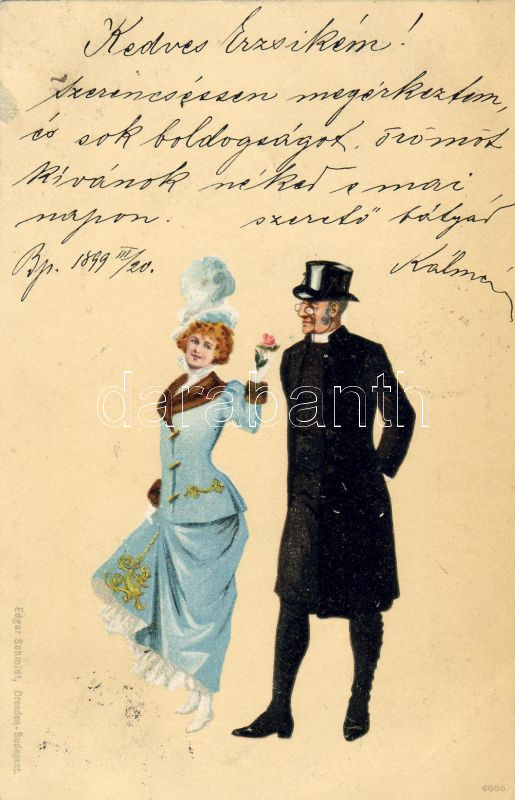 Kedves Erzsikém!
szerencséssen megérkeztem,
és sok boldogságot, örömöt
kívánok néked e mai
napon. szerető bátyád
Bp. 1899 III/20. Kálmán
darabanth
Edgar Schmidt, Dresden-Budapest.
6006.